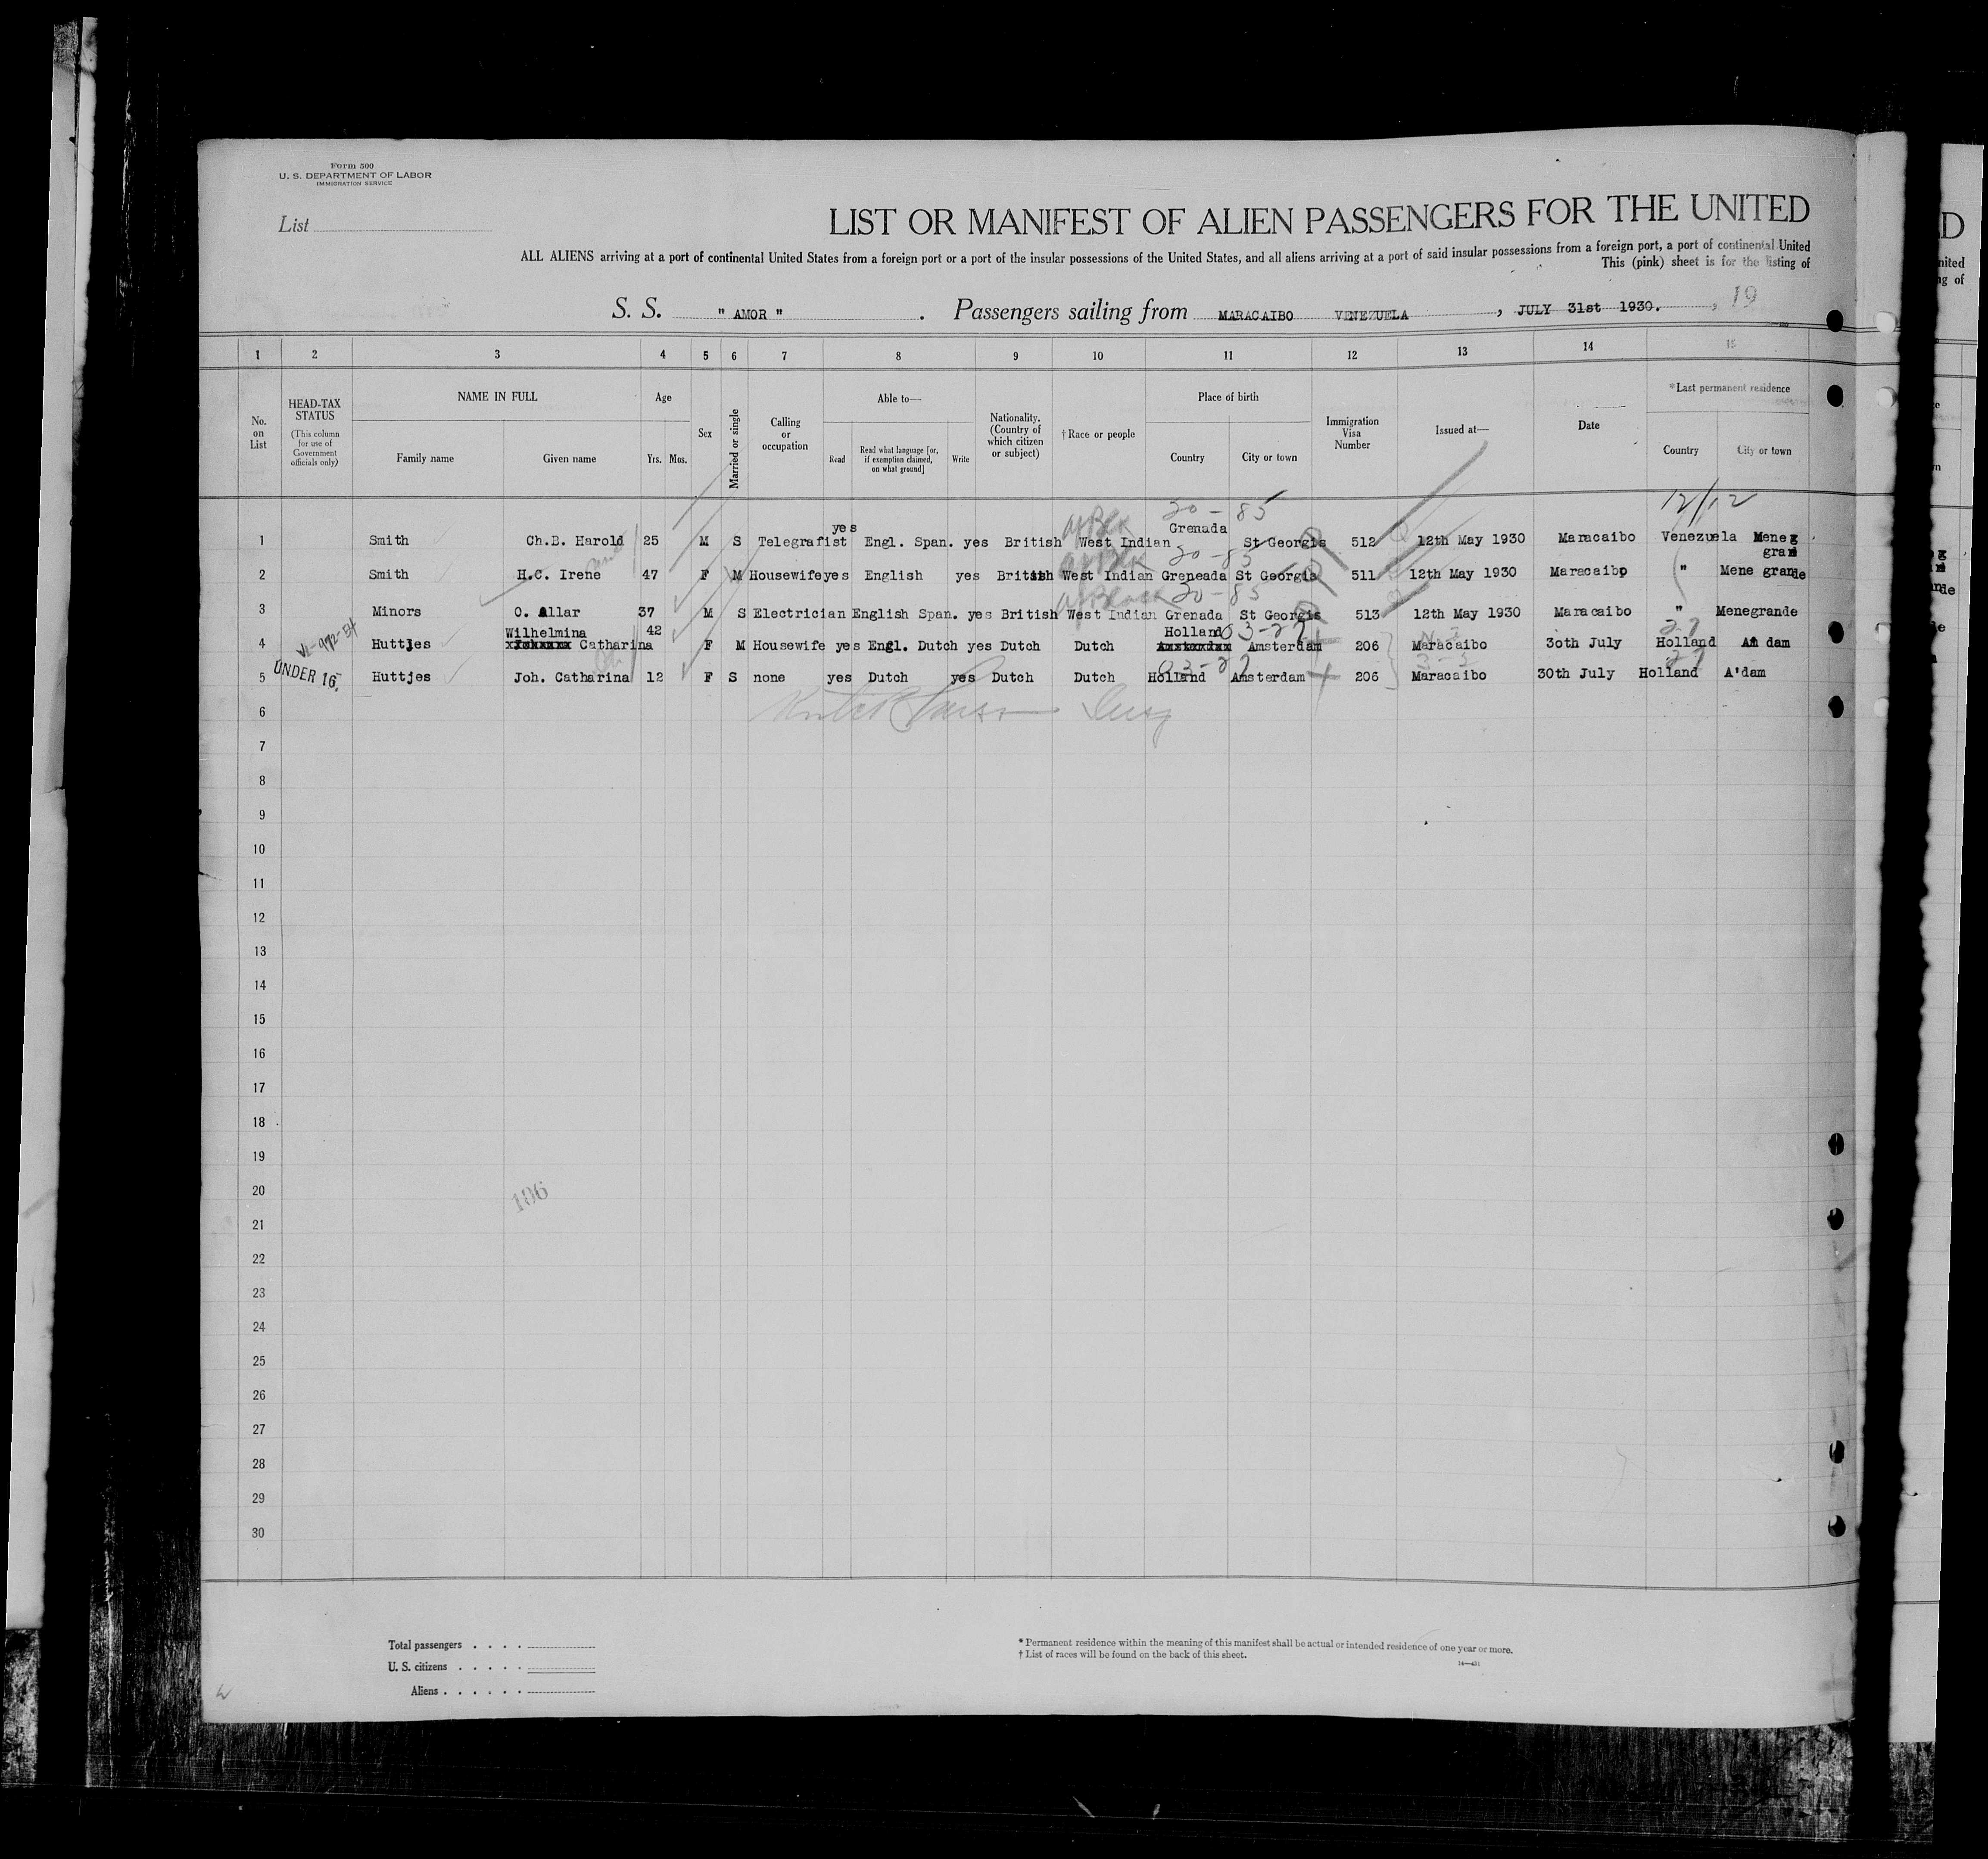 Form 500
U. S. DEPARTMENT OF LABOR
IMMIGRATION SERVICE
List
LIST OR MANIFEST OF ALIEN PASSENGERS FOR THE UNITED
ALL ALIENS arriving at a port of continental United States from a foreign port or a port of the insular possessions of the United States, and all aliens arriving at a port of said insular possessions from a foreign port, a port of continental United
This (pink) sheet is for the listing of
S. S. " AMOR " . Passengers sailing from MARACAIBO VENEZUELA , JULY 31st 1930. , 19
1 2 3 4 5 6 7 8 9 10 11 12 13 14 15
No. on List
HEAD-TAX STATUS
(This column for use of Government officials only)
NAME IN FULL
Family name Given name
Age
Yrs. Mos.
Sex
Married or single
Calling or occupation
Able to—
Read
Read what language [or, if exemption claimed, on what ground]
Write
Nationality. (Country of which citizen or subject)
†Race or people
Place of birth
Country City or town
Immigration Visa Number
Issued at—
Date
*Last permanent residence
Country City or town
12/12
20-85
yes Grenada
1 Smith Ch.B. Harold 25 M S Telegrafist Engl. Span. yes British West Indian St Georgis 512 12th May 1930 Maracaibo Venezuela Mene g
20-85 gran
2 Smith H.C. Irene 47 F M Housewife yes English yes British West Indian Greneada St Georgis 511 12th May 1930 Maracaibo " Mene grande
20-85
3 Minors O. Allar 37 M S Electrician English Span. yes British West Indian Grenada St Georgis 513 12th May 1930 Maracaibo " Menegrande
Wilhelmina 42 Holland 03-27 27
4 Huttjes Catharina F M Housewife yes Engl. Dutch yes Dutch Dutch Amsterdam 206 Maracaibo 3oth July Holland Am dam
03-27 3-3 27
UNDER 16.
5 Huttjes Joh. Catharina 12 F S none yes Dutch yes Dutch Dutch Holland Amsterdam 206 Maracaibo 30th July Holland A'dam
6
7
8
9
10
11
12
13
14
15
16
17
18
19
20
106
21
22
23
24
25
26
27
28
29
30
Total passengers . . . .
U. S. citizens . . . . .
Aliens . . . . . .
* Permanent residence within the meaning of this manifest shall be actual or intended residence of one year or more.
† List of races will be found on the back of this sheet.